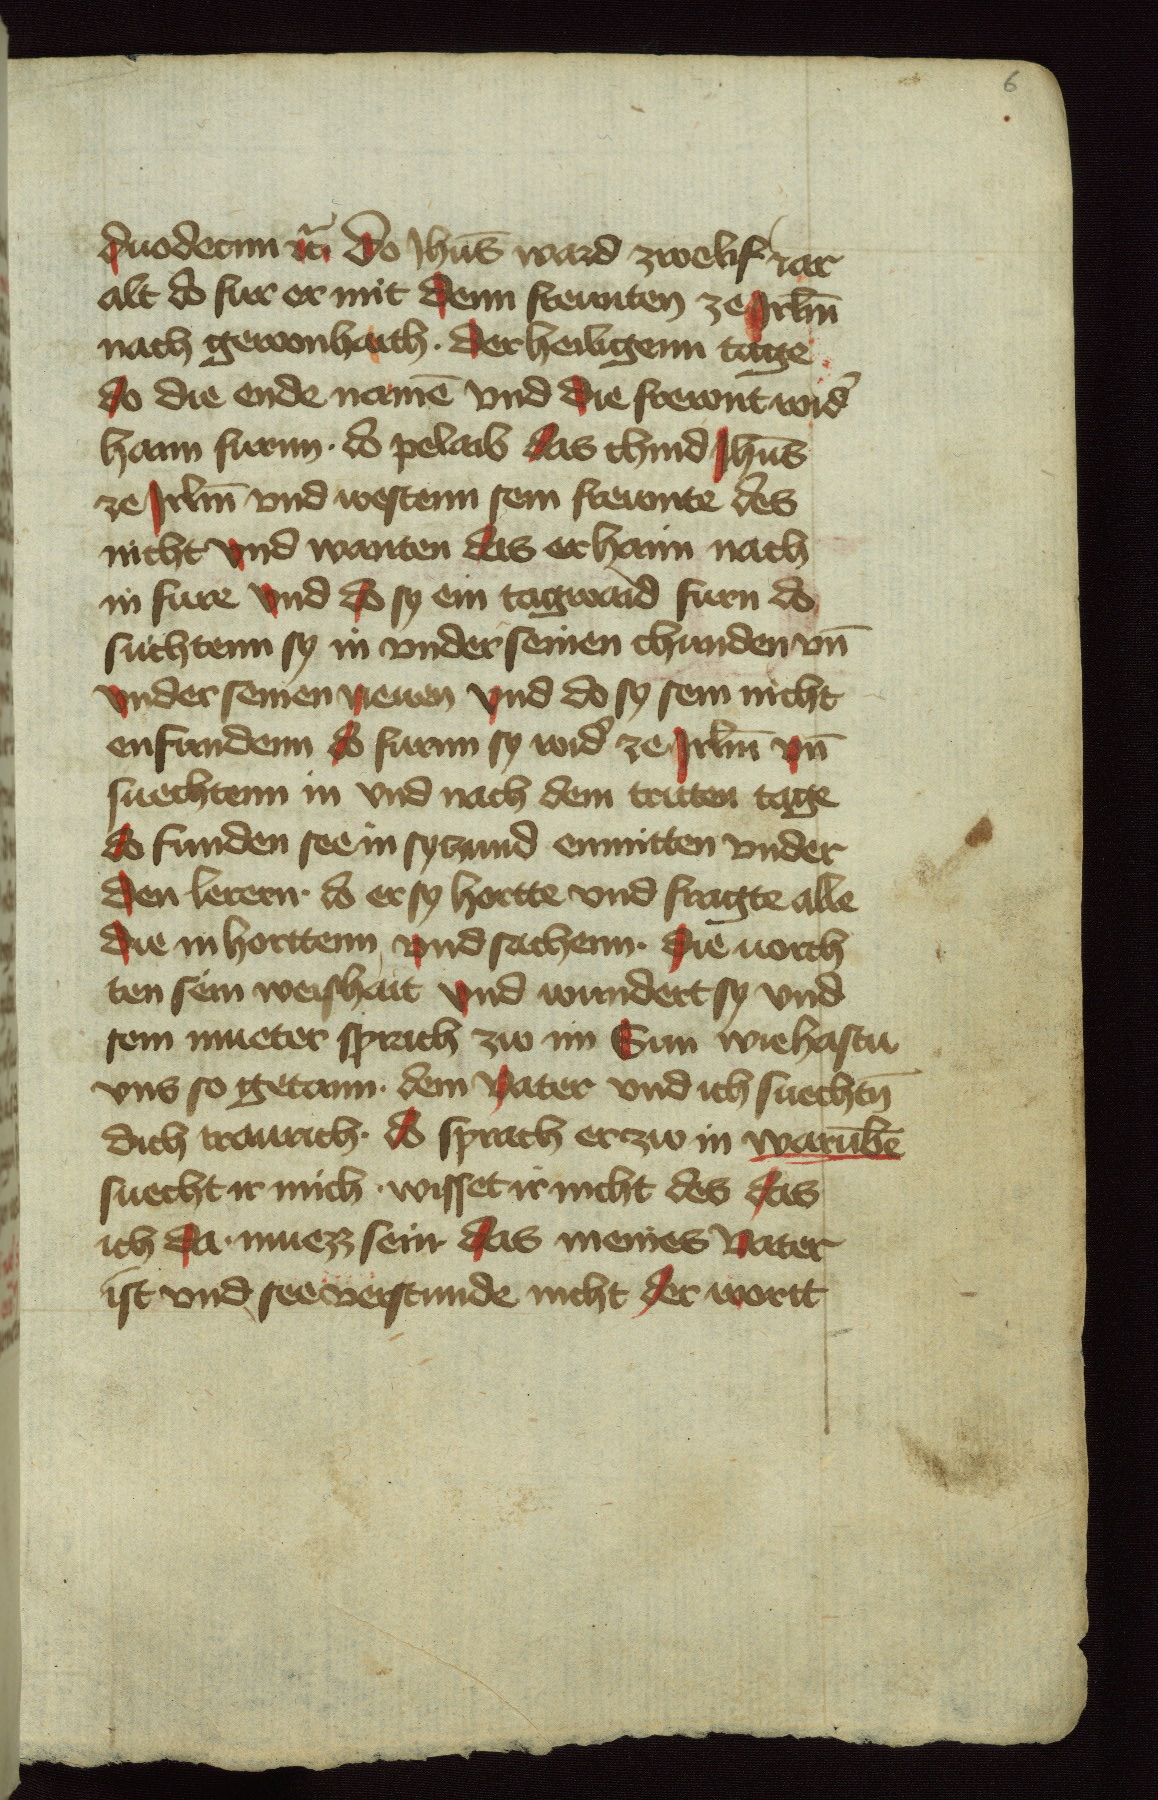 6
duodecim rc̃ Do Jhūs ward zwelif iar
alt do fur er mit denn freunten ze Jrlm̄
nach gewonhaith · der heiligenn tage
do die ende namē vnd die frewnt wid͛
haim furnn · do pelaib das chind Jhūs
ze Jrlm̄ vnd westenn sein frewnte des
nicht vnd wanten das er haim nach
in fure vnd do sy ein tagwaid furn do
suchtenn sy in vnder seinen chunden vn̄
vnder seinen neuen vnd do sy sein nicht
enfundenn do furnn sy wid͛ ze Jrlm̄ vn̄
suechtenn in vnd nach dem tritten tage
do funden see in sytzund enmitten vnder
den lerern · do er sy hortte vnd fragte alle
die in horttenn vnd sachenn · die uorch
ten sein weishait vnd wundert sy vnd
sein mueter sprach zw im Sun wie hastu
vns so getann · dein vater vnd ich suechtn̄
dich traurich · do sprach er zw in warūbē
suecht ir mich · wisset ir nicht des das
ich da · muezz sein das meines vater
ist vnd see verstunde nicht der wortt